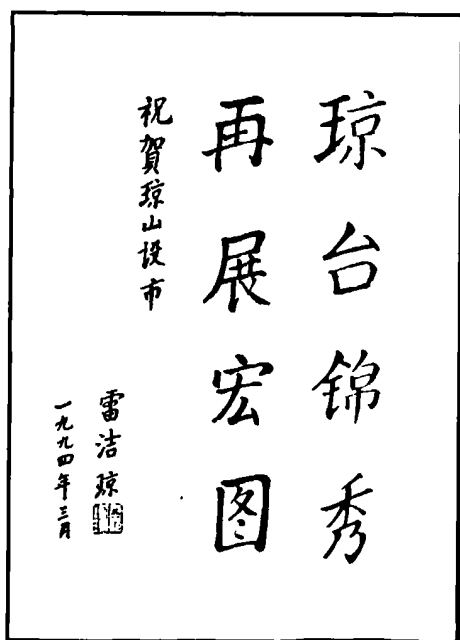 琼台锦秀
再展宏图
祝贺琼山设市
雷洁琼
一九九四年三月